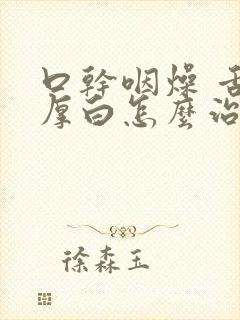 口幹咽燥 舌
厚白怎麼治
徐森玉